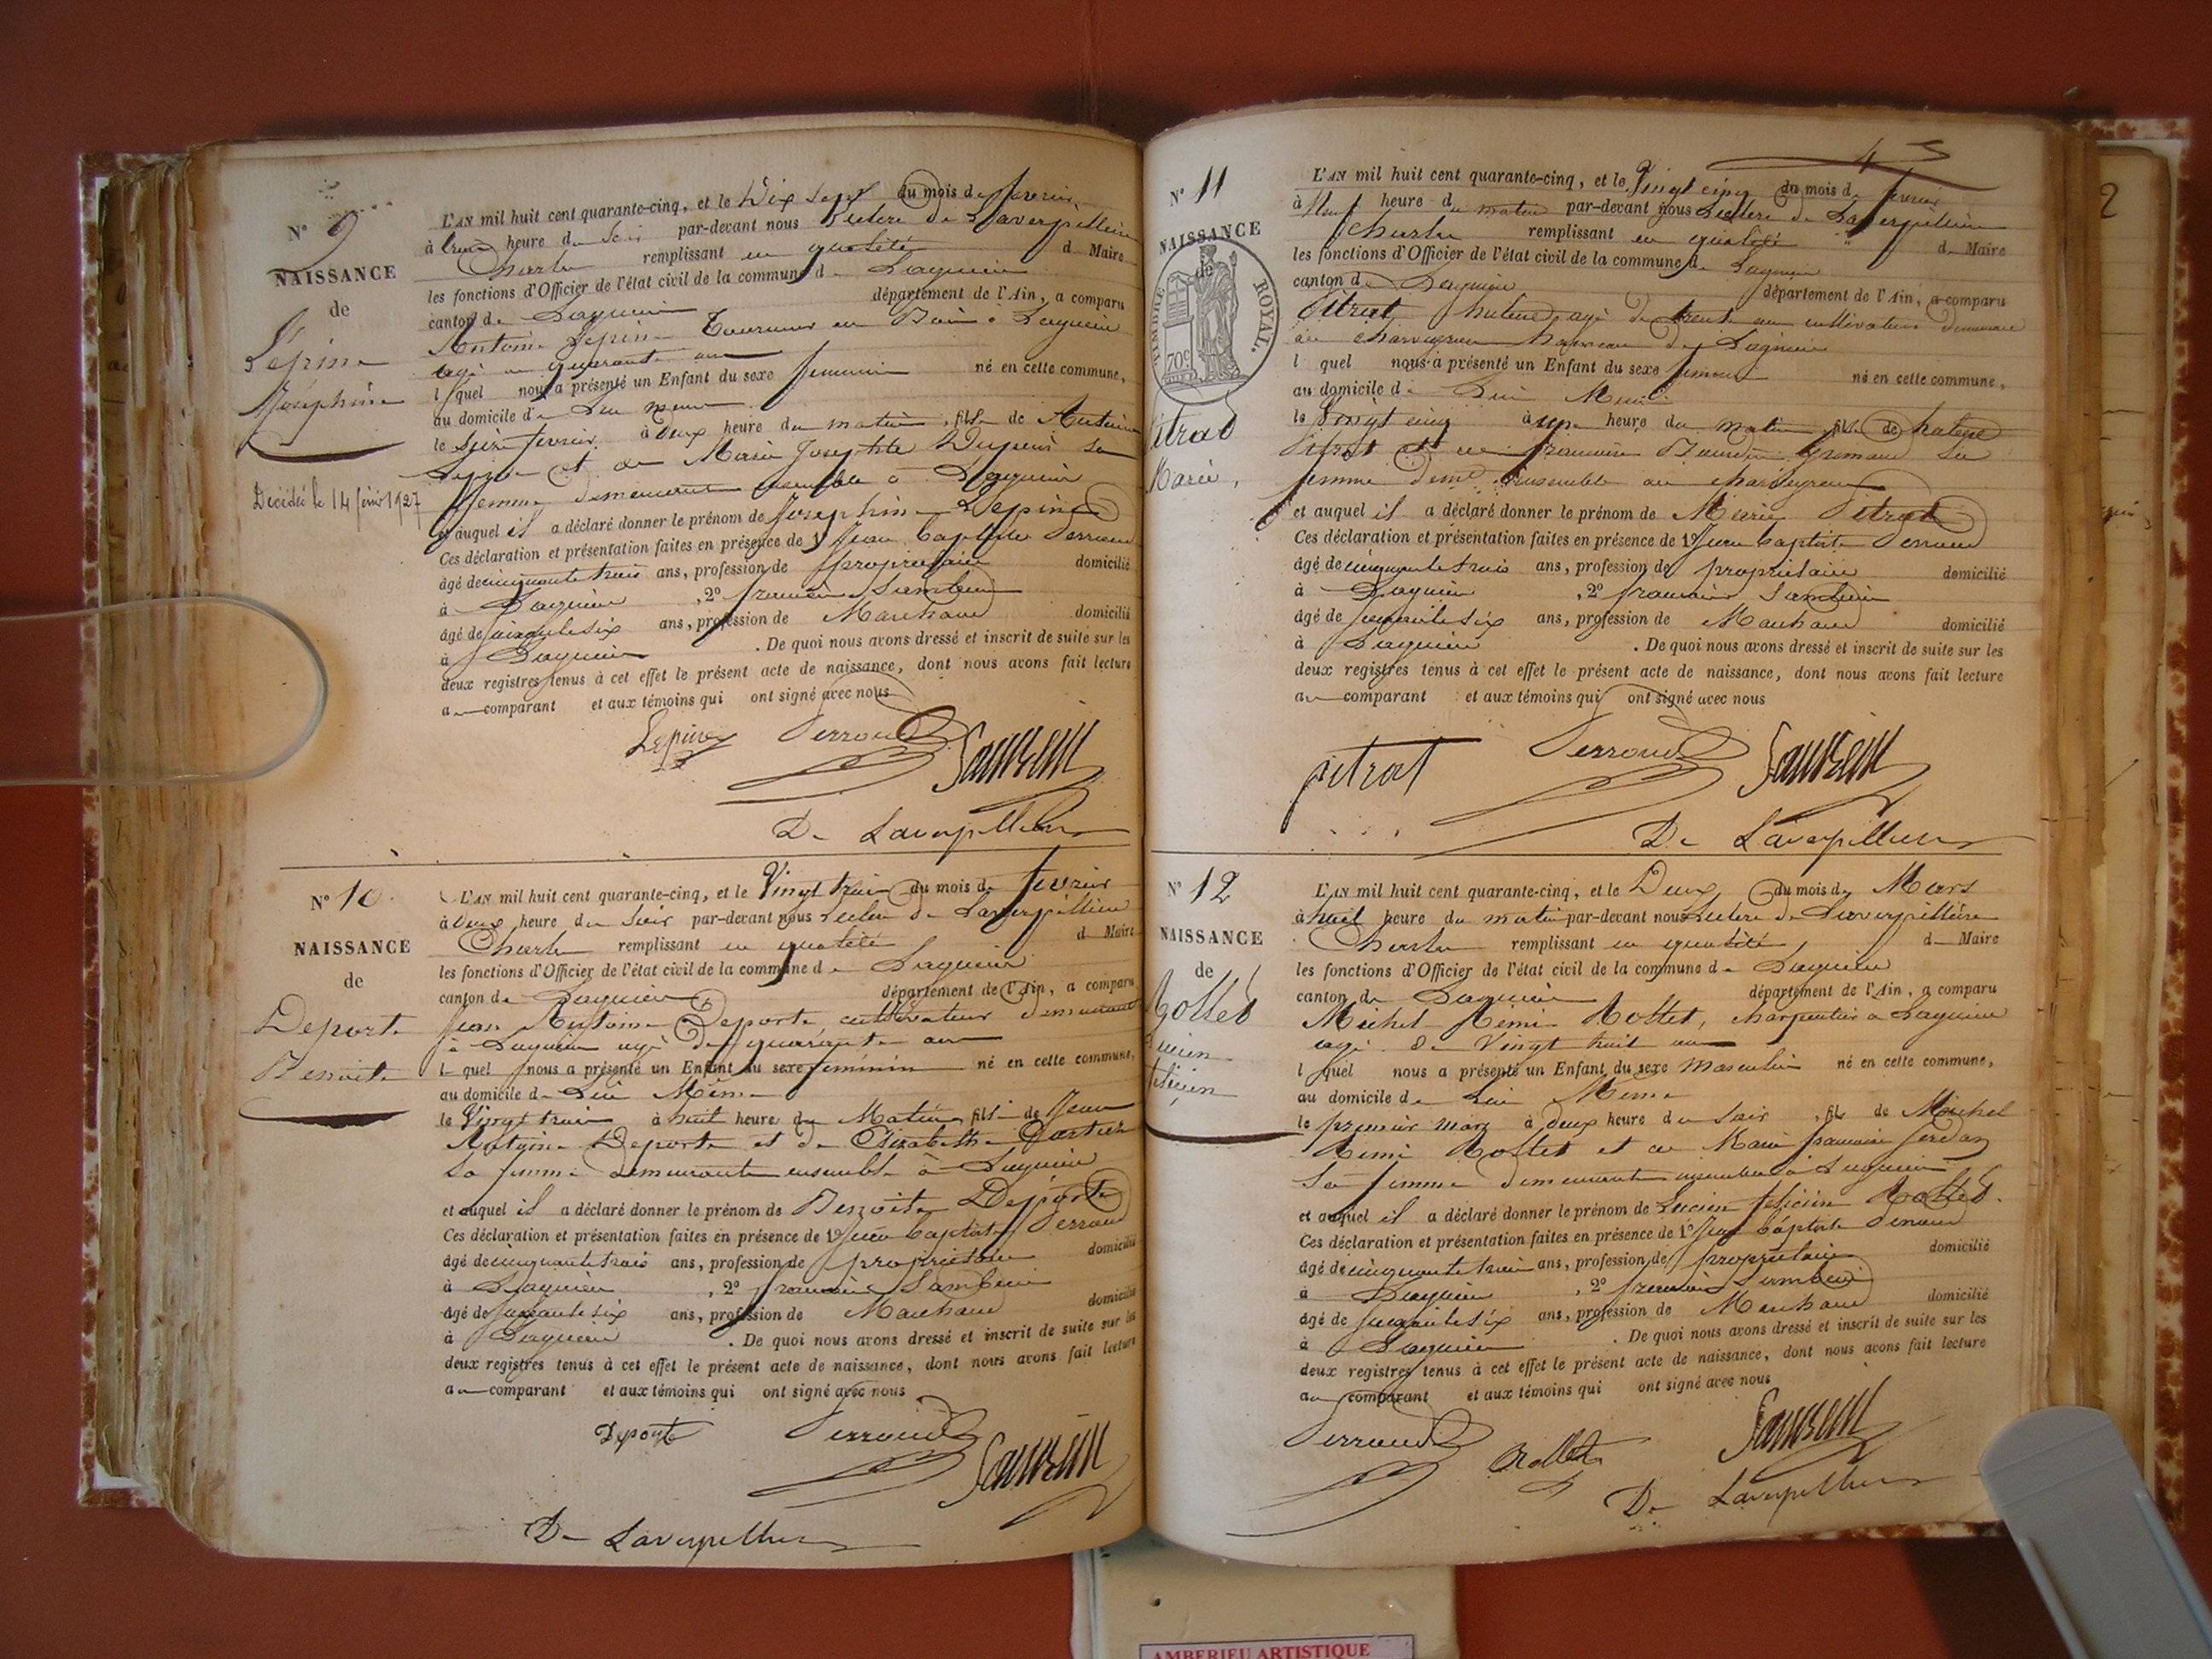 N° 9
NAISSANCE
de
Lépine
Joséphine
Décédée le 14 févr 1927
L'AN mil huit cent quarante-cinq, et le Dix sept du mois de fevrier
à heure du soir par-devant nous Leclerc de Laverpillière
Charles remplissant en qualité de Maire
les fonctions d'Officier de l'état civil de la commune de Lagnieu
canton de Lagnieu département de l'Ain, a comparu
Antoine Lépine Tourneur en Bois à Lagnieu
agé de quarante ans
lequel nous a présenté un Enfant du sexe feminin né en cette commune,
au domicile de Lui meme
le Seize fevrier à deux heure du matin, fille de Antoine
Lepine et de Marie Josephte Dupuis sa
femme demeurant ensemble à Lagnieu
et auquel il a déclaré donner le prénom de Josephine Lepine
Ces déclaration et présentation faites en présence de 1° Jean Baptiste Perroud
âgé de cinquante trois ans, profession de propriétaire domicilié
à Lagnieu , 2° francois Sambein
âgé de six ans, profession de Marchand domicilié
à Lagnieu . De quoi nous avons dressé et inscrit de suite sur les
deux registres tenus à cet effet le présent acte de naissance, dont nous avons fait lecture
au comparant et aux témoins qui ont signé avec nous
Lepine Perroud Sambein
De Laverpilliere
N° 10
NAISSANCE
de
Deporte
Benoite
L'AN mil huit cent quarante-cinq, et le Vingt trois du mois de fevrier
à deux heure du soir par-devant nous Leclerc de Laverpillière
Charles remplissant en qualité de Maire
les fonctions d'Officier de l'état civil de la commune de Lagnieu
canton de Lagnieu département de l'Ain, a comparu
Jean Antoine Deporte, cultivateur demeurant
à Lagnieu agé de quarante ans
lequel nous a présenté un Enfant du sexe féminin né en cette commune,
au domicile de Lui Même
le Vingt trois à huit heure du Matin, fille de Jean
Antoine Deporte et de Elizabeth
sa femme demeurante ensemble à Lagnieu
et auquel il a déclaré donner le prénom de Benoite Deporte
Ces déclaration et présentation faites en présence de 1° Jean Baptiste Perroud
âgé de cinquante trois ans, profession de propriétaire domicilié
à Lagnieu , 2° francois Sambein
âgé de six ans, profession de Marchand domicilié
à Lagnieu . De quoi nous avons dressé et inscrit de suite sur les
deux registres tenus à cet effet le présent acte de naissance, dont nous avons fait lecture
au comparant et aux témoins qui ont signé avec nous
Deporte Perroud Sambein
De Laverpilliere
N° 11
NAISSANCE
de
TIMBRE ROYAL.
70c
Pitrat
Marie,
L'AN mil huit cent quarante-cinq, et le Vingt cinq du mois de fevrier
à Neuf heure du matin par-devant nous Leclerc de Laverpillière
Charles remplissant en qualité de Maire
les fonctions d'Officier de l'état civil de la commune de Lagnieu
canton de Lagnieu département de l'Ain, a comparu
Pitrat agé de trente ans cultivateur demeurant
au charveyron hameau de Lagnieu
lequel nous a présenté un Enfant du sexe feminin né en cette commune,
au domicile de Lui Meme
le Vingt cinq à une heure du matin, fille de
Pitrat et de francoise sa
femme demt ensemble au charveyron
et auquel il a déclaré donner le prénom de Marie Pitrat
Ces déclaration et présentation faites en présence de 1° Jean baptiste Perroud
âgé de cinquante trois ans, profession de propriétaire domicilié
à Lagnieu , 2° francois Sambein
âgé de six ans, profession de Marchand domicilié
à Lagnieu . De quoi nous avons dressé et inscrit de suite sur les
deux registres tenus à cet effet le présent acte de naissance, dont nous avons fait lecture
au comparant et aux témoins qui ont signé avec nous
pitrat Perroud Sambein
De Laverpilliere
N° 12
NAISSANCE
de
Rollet
Lucien
felicien
L'AN mil huit cent quarante-cinq, et le Deux du mois de Mars
à huit heure du matin par-devant nous Leclerc de Laverpillière
Charles remplissant en qualité de Maire
les fonctions d'Officier de l'état civil de la commune de Lagnieu
canton de Lagnieu département de l'Ain, a comparu
Michel Remi Rollet, charpentier a Lagnieu
agé de Vingt huit ans
lequel nous a présenté un Enfant du sexe masculin né en cette commune,
au domicile de Lui Meme
le premier mars à deux heure du soir, fils de Michel
Remi Rollet et de Marie francoise
sa femme demeurante ensemble à Lagnieu
et auquel il a déclaré donner le prénom de Lucien felicien Rollet.
Ces déclaration et présentation faites en présence de 1° Jean baptiste Perroud
âgé de cinquante trois ans, profession de propriétaire domicilié
à Lagnieu , 2° francois Sambein
âgé de six ans, profession de Marchand domicilié
à Lagnieu . De quoi nous avons dressé et inscrit de suite sur les
deux registres tenus à cet effet le présent acte de naissance, dont nous avons fait lecture
au comparant et aux témoins qui ont signé avec nous
Perroud Rollet Sambein
De Laverpilliere
2
AMBERIEU ARTISTIQUE